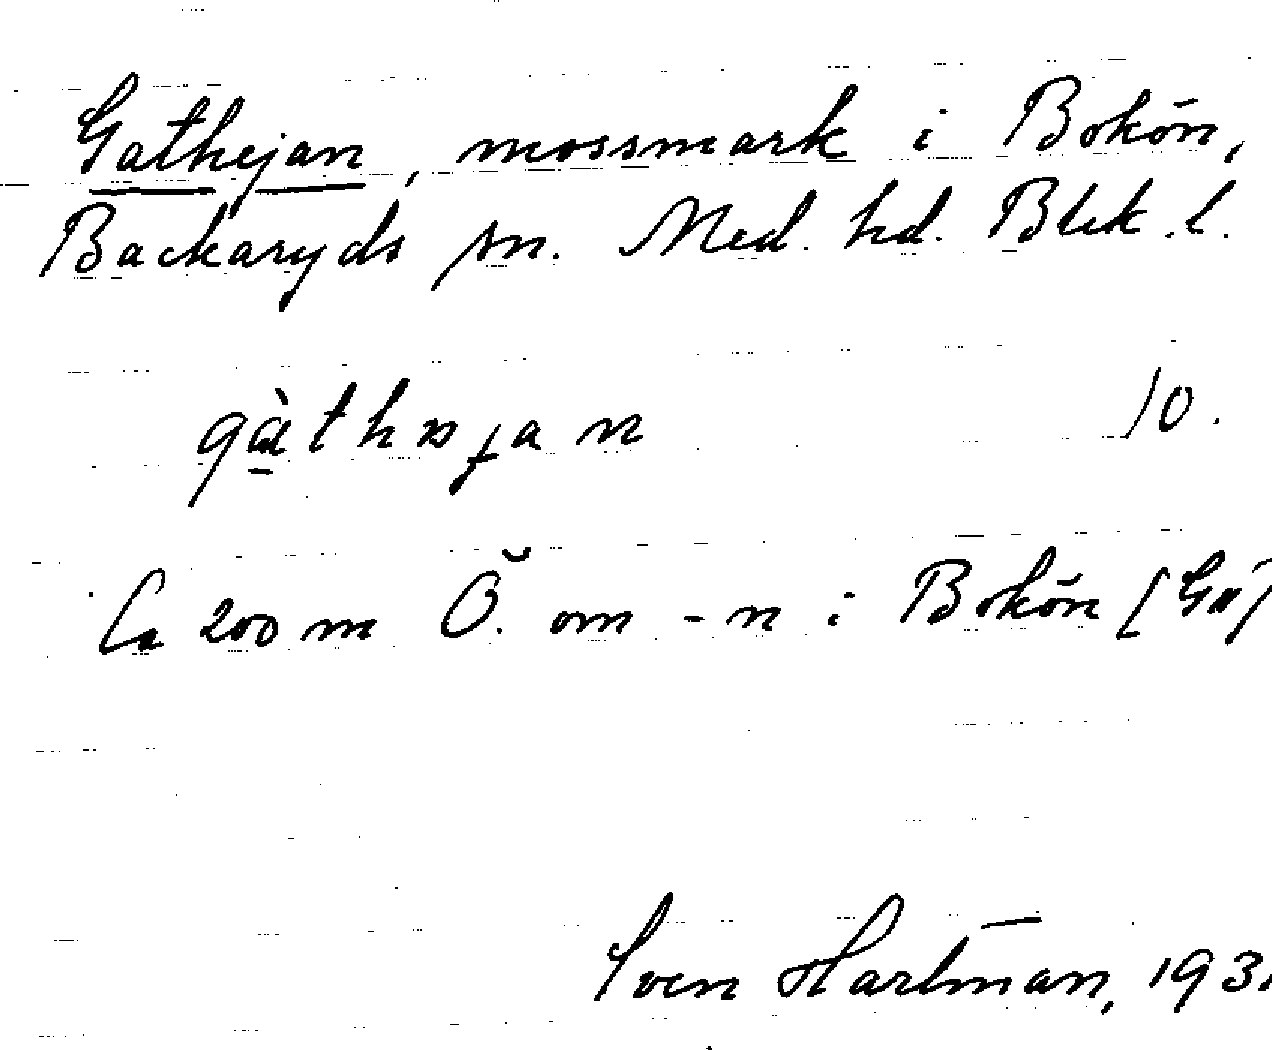 Gathejan, mossmark i Bokön,
Backaryds sn. Med. hd. Blek. l.
10.
Ca 200 m Ö. om -n i Bokön [Gö]
Sven Hartman, 193